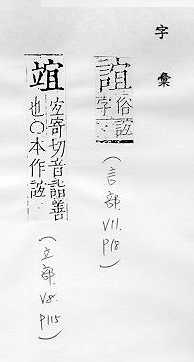 字彙
誼 俗
字
(言部 V11. P18)
竩 寄切音詣善
也○本作
(立部 V8. P115)